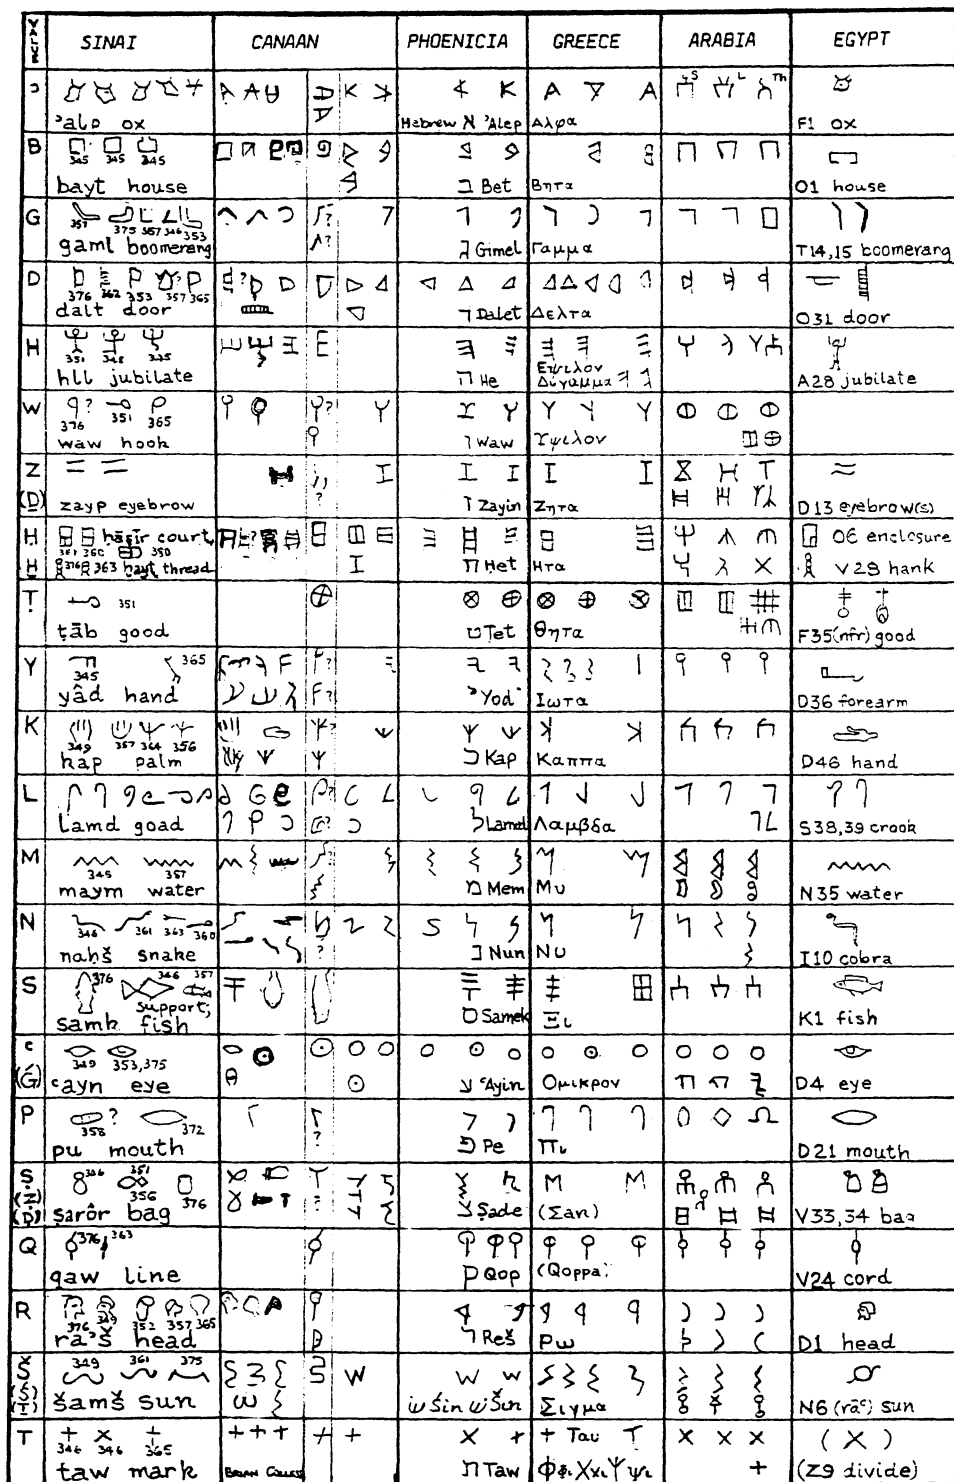 VALUE SINAI CANAAN PHOENICIA GREECE ARABIA EGYPT
ʾalp ox Hebrew א ʾAlep Αλφα S L Th F1 ox
B 345 345 345
bayt house ב Bet Βητα O1 house
G 357 375 357 346 353 ? ?
gaml boomerang ג Gimel Γαμμα T14,15 boomerang
D 376 362 353 357 365 ? ?
dalt door ד Dalet Δελτα O31 door
H 351 345
hll jubilate ה He Εψιλον Διγαμμα A28 jubilate
W ? 376 351 365 ?
waw hook ו Waw Υψιλον
Z (D)
zayp eyebrow ? ז Zayin Ζητα D13 eyebrow(s)
H ḥaṣir court, O6 enclosure
361 360 350
H 376 363 ḫayt thread ח Ḥet Ητα V28 hank
Ṭ 351
ṭāb good ט Ṭet Θητα F35(nfr) good
Y 345 365 ? ?
yâd hand י Yod Ιωτα D36 forearm
K 349 357 364 356 ?
kap palm כ Kap Καππα D46 hand
L ? ?
lamd goad ל Lamed Λαμβδα S38,39 crook
M 345 357 ?
maym water מ Mem Μυ N35 water
N 346 361 363 360 ?
naḥš snake נ Nun Νυ I10 cobra
S 376 346 357
support,
samk fish ס Samek Ξι K1 fish
ʿ (Ǵ) 349 353,375
ʿayn eye ע ʿAyin Ομικρον D4 eye
P 358 ? 372 ?
pu mouth פ Pe Πι D21 mouth
Ṣ (Ẓ) (Ḍ) 346 351 356 376
ṣarôr bag צ Ṣade (Σαν) V33,34 bag
Q 376 363
qaw line ק Qop (Qoppa) V24 cord
R 376 349 352 357 365
raʾš head ר Reš Ρω D1 head
Š (Ś) (Ṯ) 349 361 375
šamš sun שׂ Śin שׁ Šin Σιγμα N6 (rāʿ) sun
T 346 346 365 Ταυ (X)
taw mark BRIAN COLLESS ת Taw Φφι Χχι Ψψι (Z9 divide)